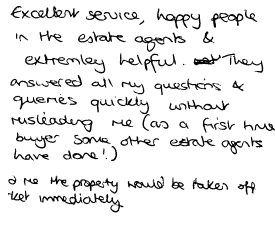 Excellent service, happy people
in the estate agents &
extremley helpful. They
answered all my questions &
queries quickly without
misleading me (as a first time
buyer some other estate agents
have done!)
d me the property would be taken off
ket immediately